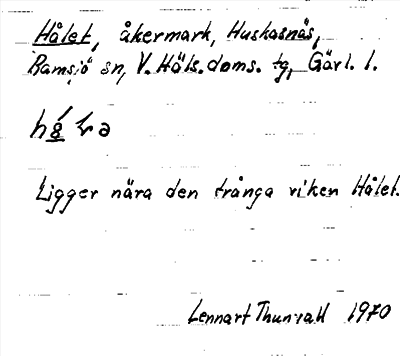 Hålet, åkermark, Huskasnäs,
Ramsjö sn, V. Häls. doms. tg, Gävl. l.
Ligger nära den trånga viken Hålet.
Lennart Thunvall 1970